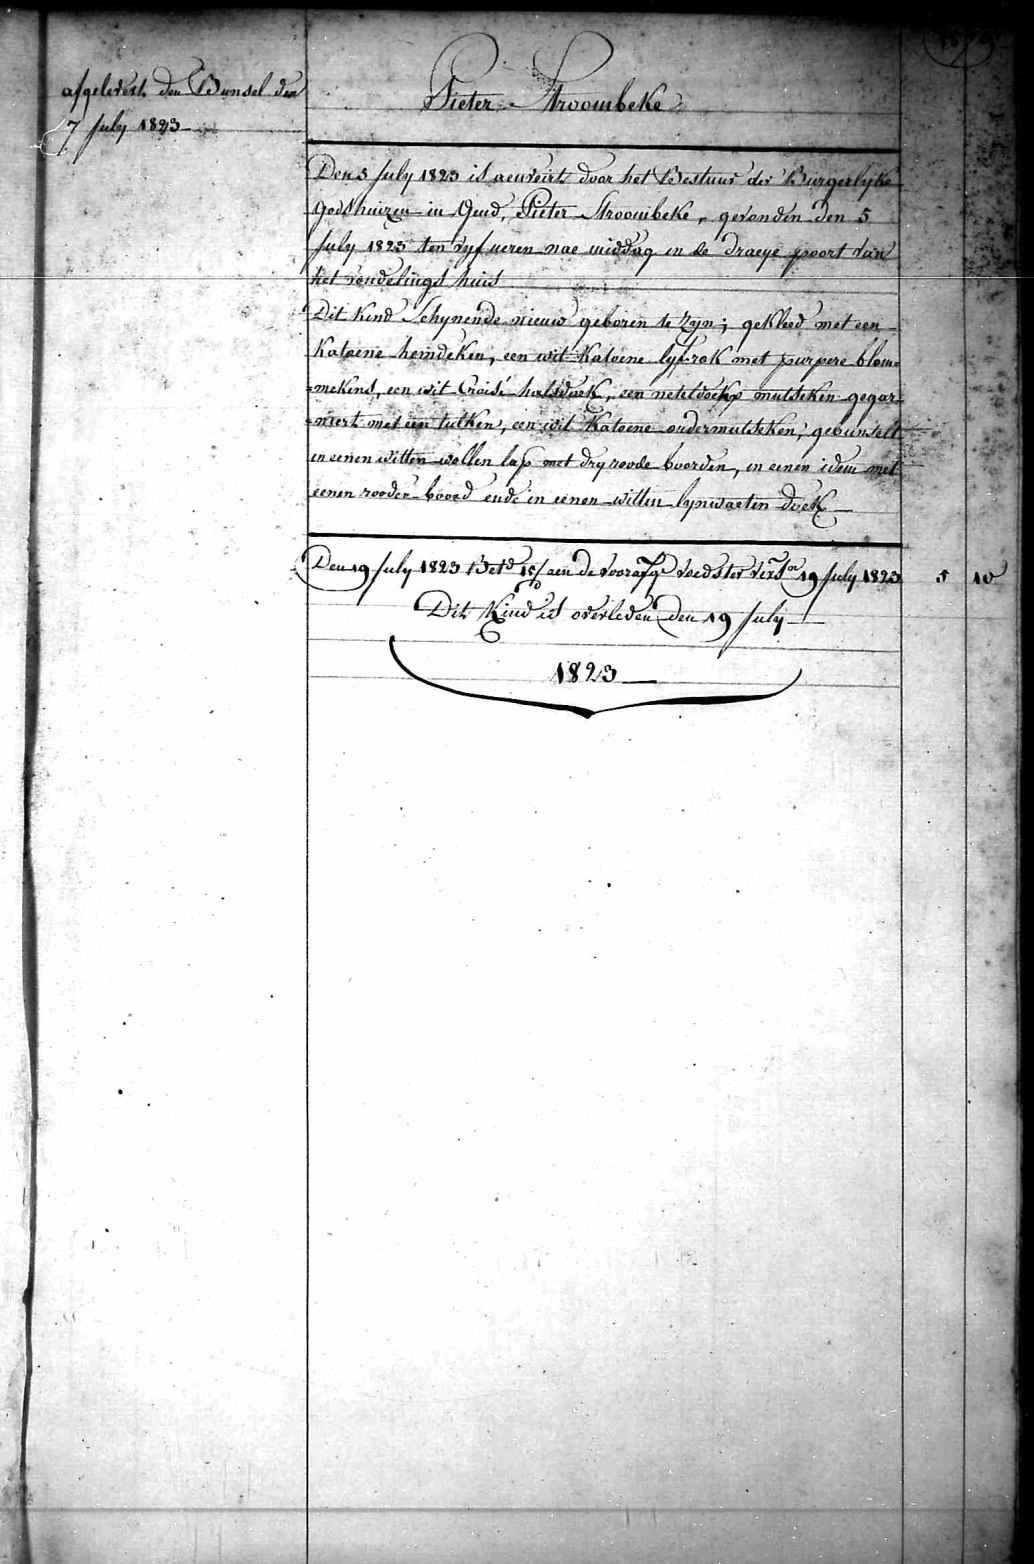 afgelevert den Bunsel den
7 July 1823
Pieter Stroombeke
Den 5 July 1823 is aenveirt door het Bestuur der Burgerlyke
Godshuizen in Gend, Pieter Stroombeke, gevonden den 5
July 1823 ten vyf ueren nae middag in de draeye poort van
het vondelings huis
Dit Kind Schynende nieuw geboren te Zyn; gekleed met een
Katoene hemdeken, een wit Katoene lyfrok met purpere bloem-
=mekens, een wit Croisé halsdoek, een neteldoekx mutseken gegar-
=niert met een tulken, een wit Katoene ondermutseken, gebunselt
in eenen witten wollen lap met dry roode boorden, in eenen idem met
eenen rooden boord ende in eenen witten lynwaeten doek
Den 19 July 1823 Bet.d aen de voorzg.e voedster 19 July 1823 5 10
Dit Kind is overleden den 19 July
1823